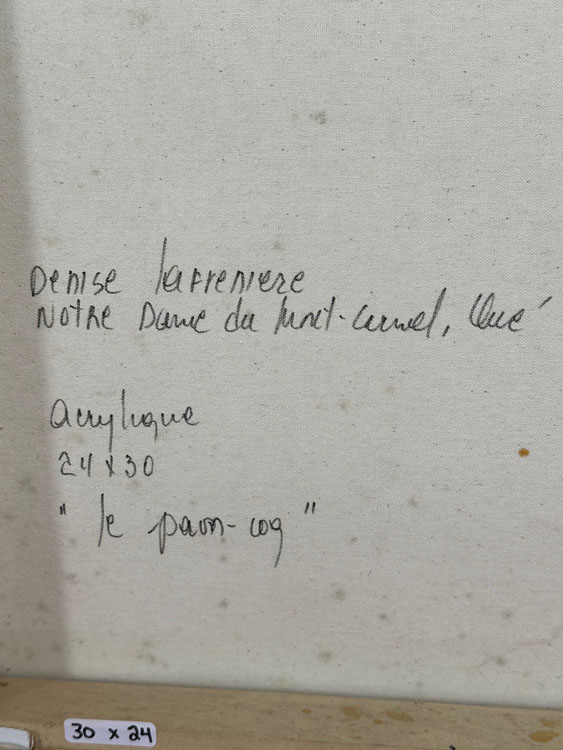 Denise Lafreniere
Notre Dame du Mont-Carmel, Qué
acrylique
24 x 30
" le paon-coq "
30 x 24